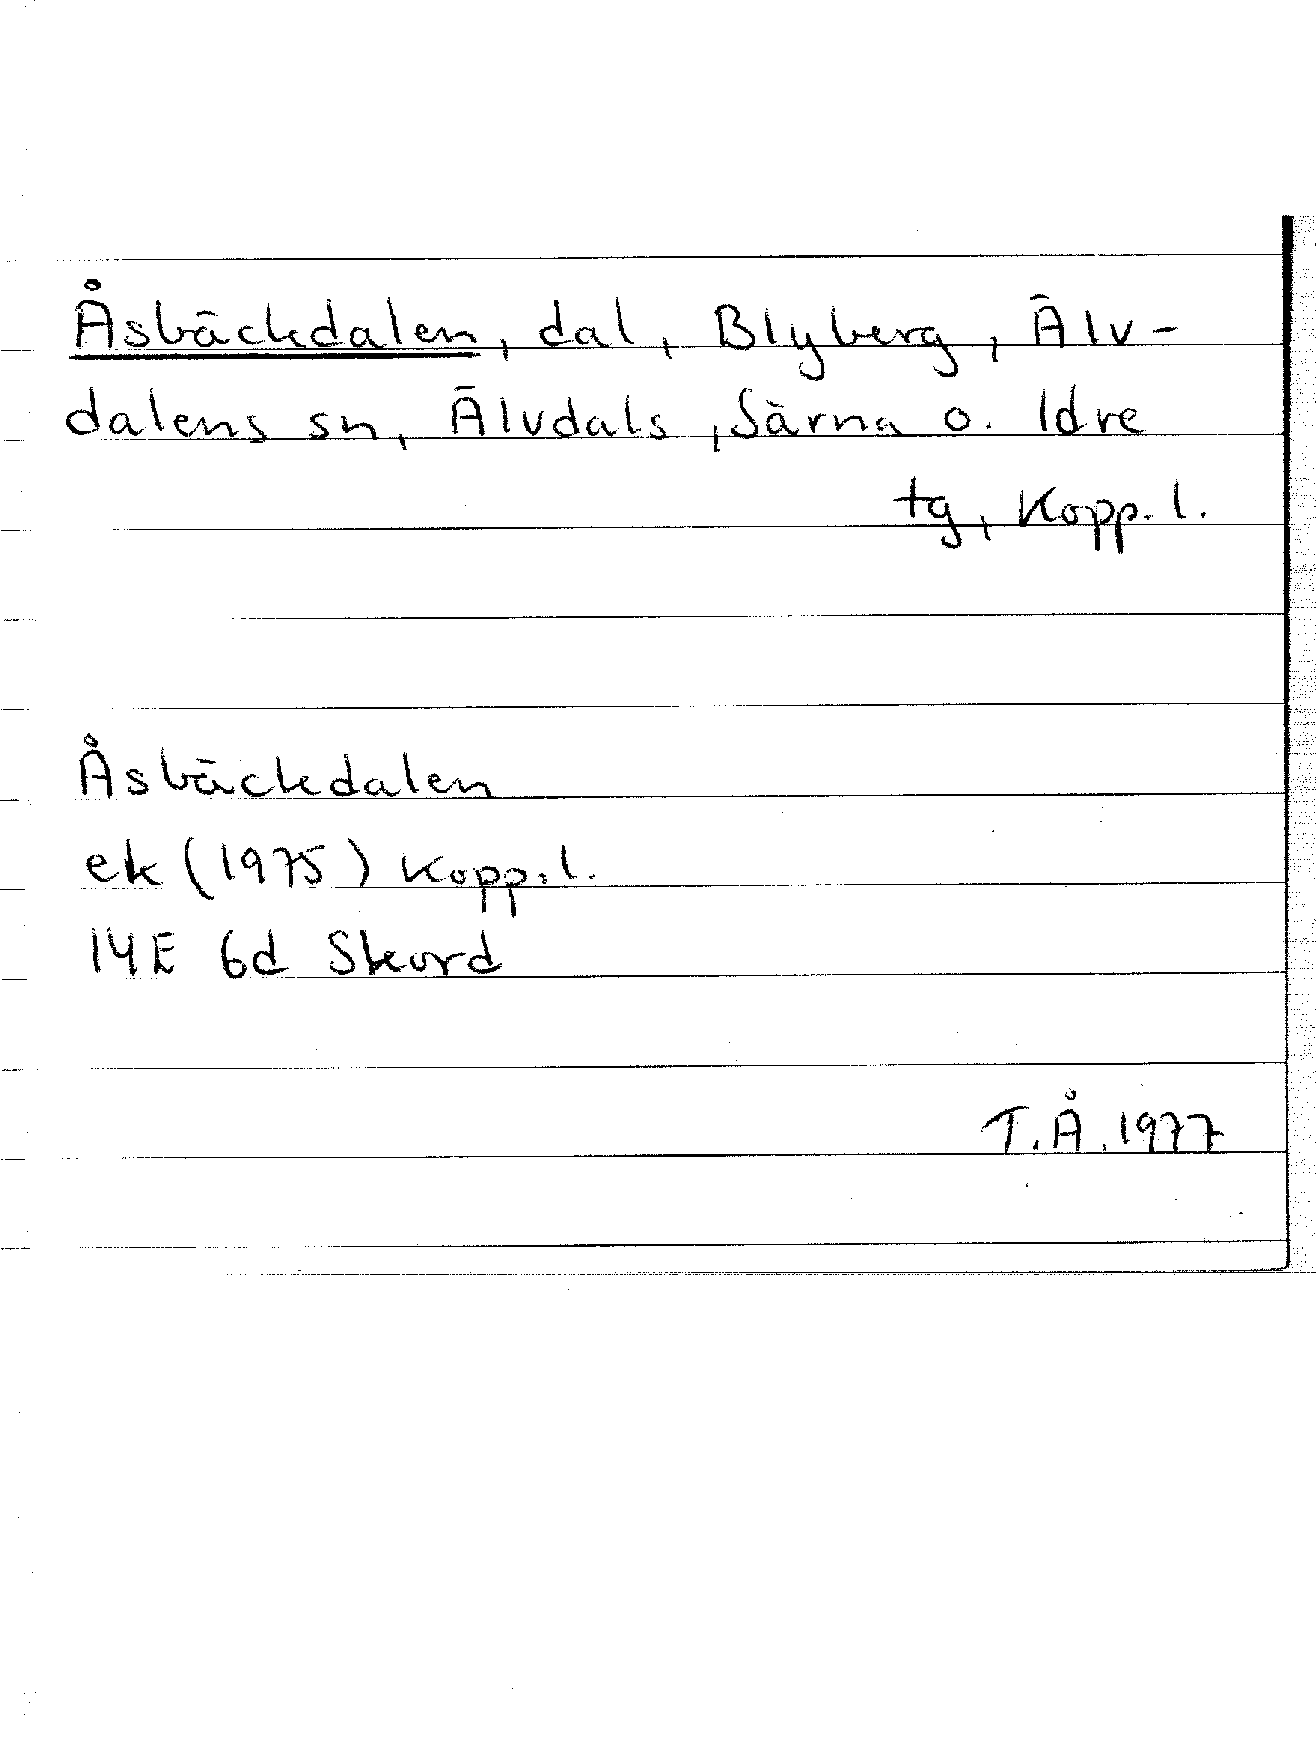 Åsbäckdalen, dal, Blyberg, Älv-
dalens sn, Älvdals, Särna o. Idre
tg, Kopp. l.
Åsbäckdalen
ek (1975) Kopp. l.
14E 6d Skord
T.Å. 1977